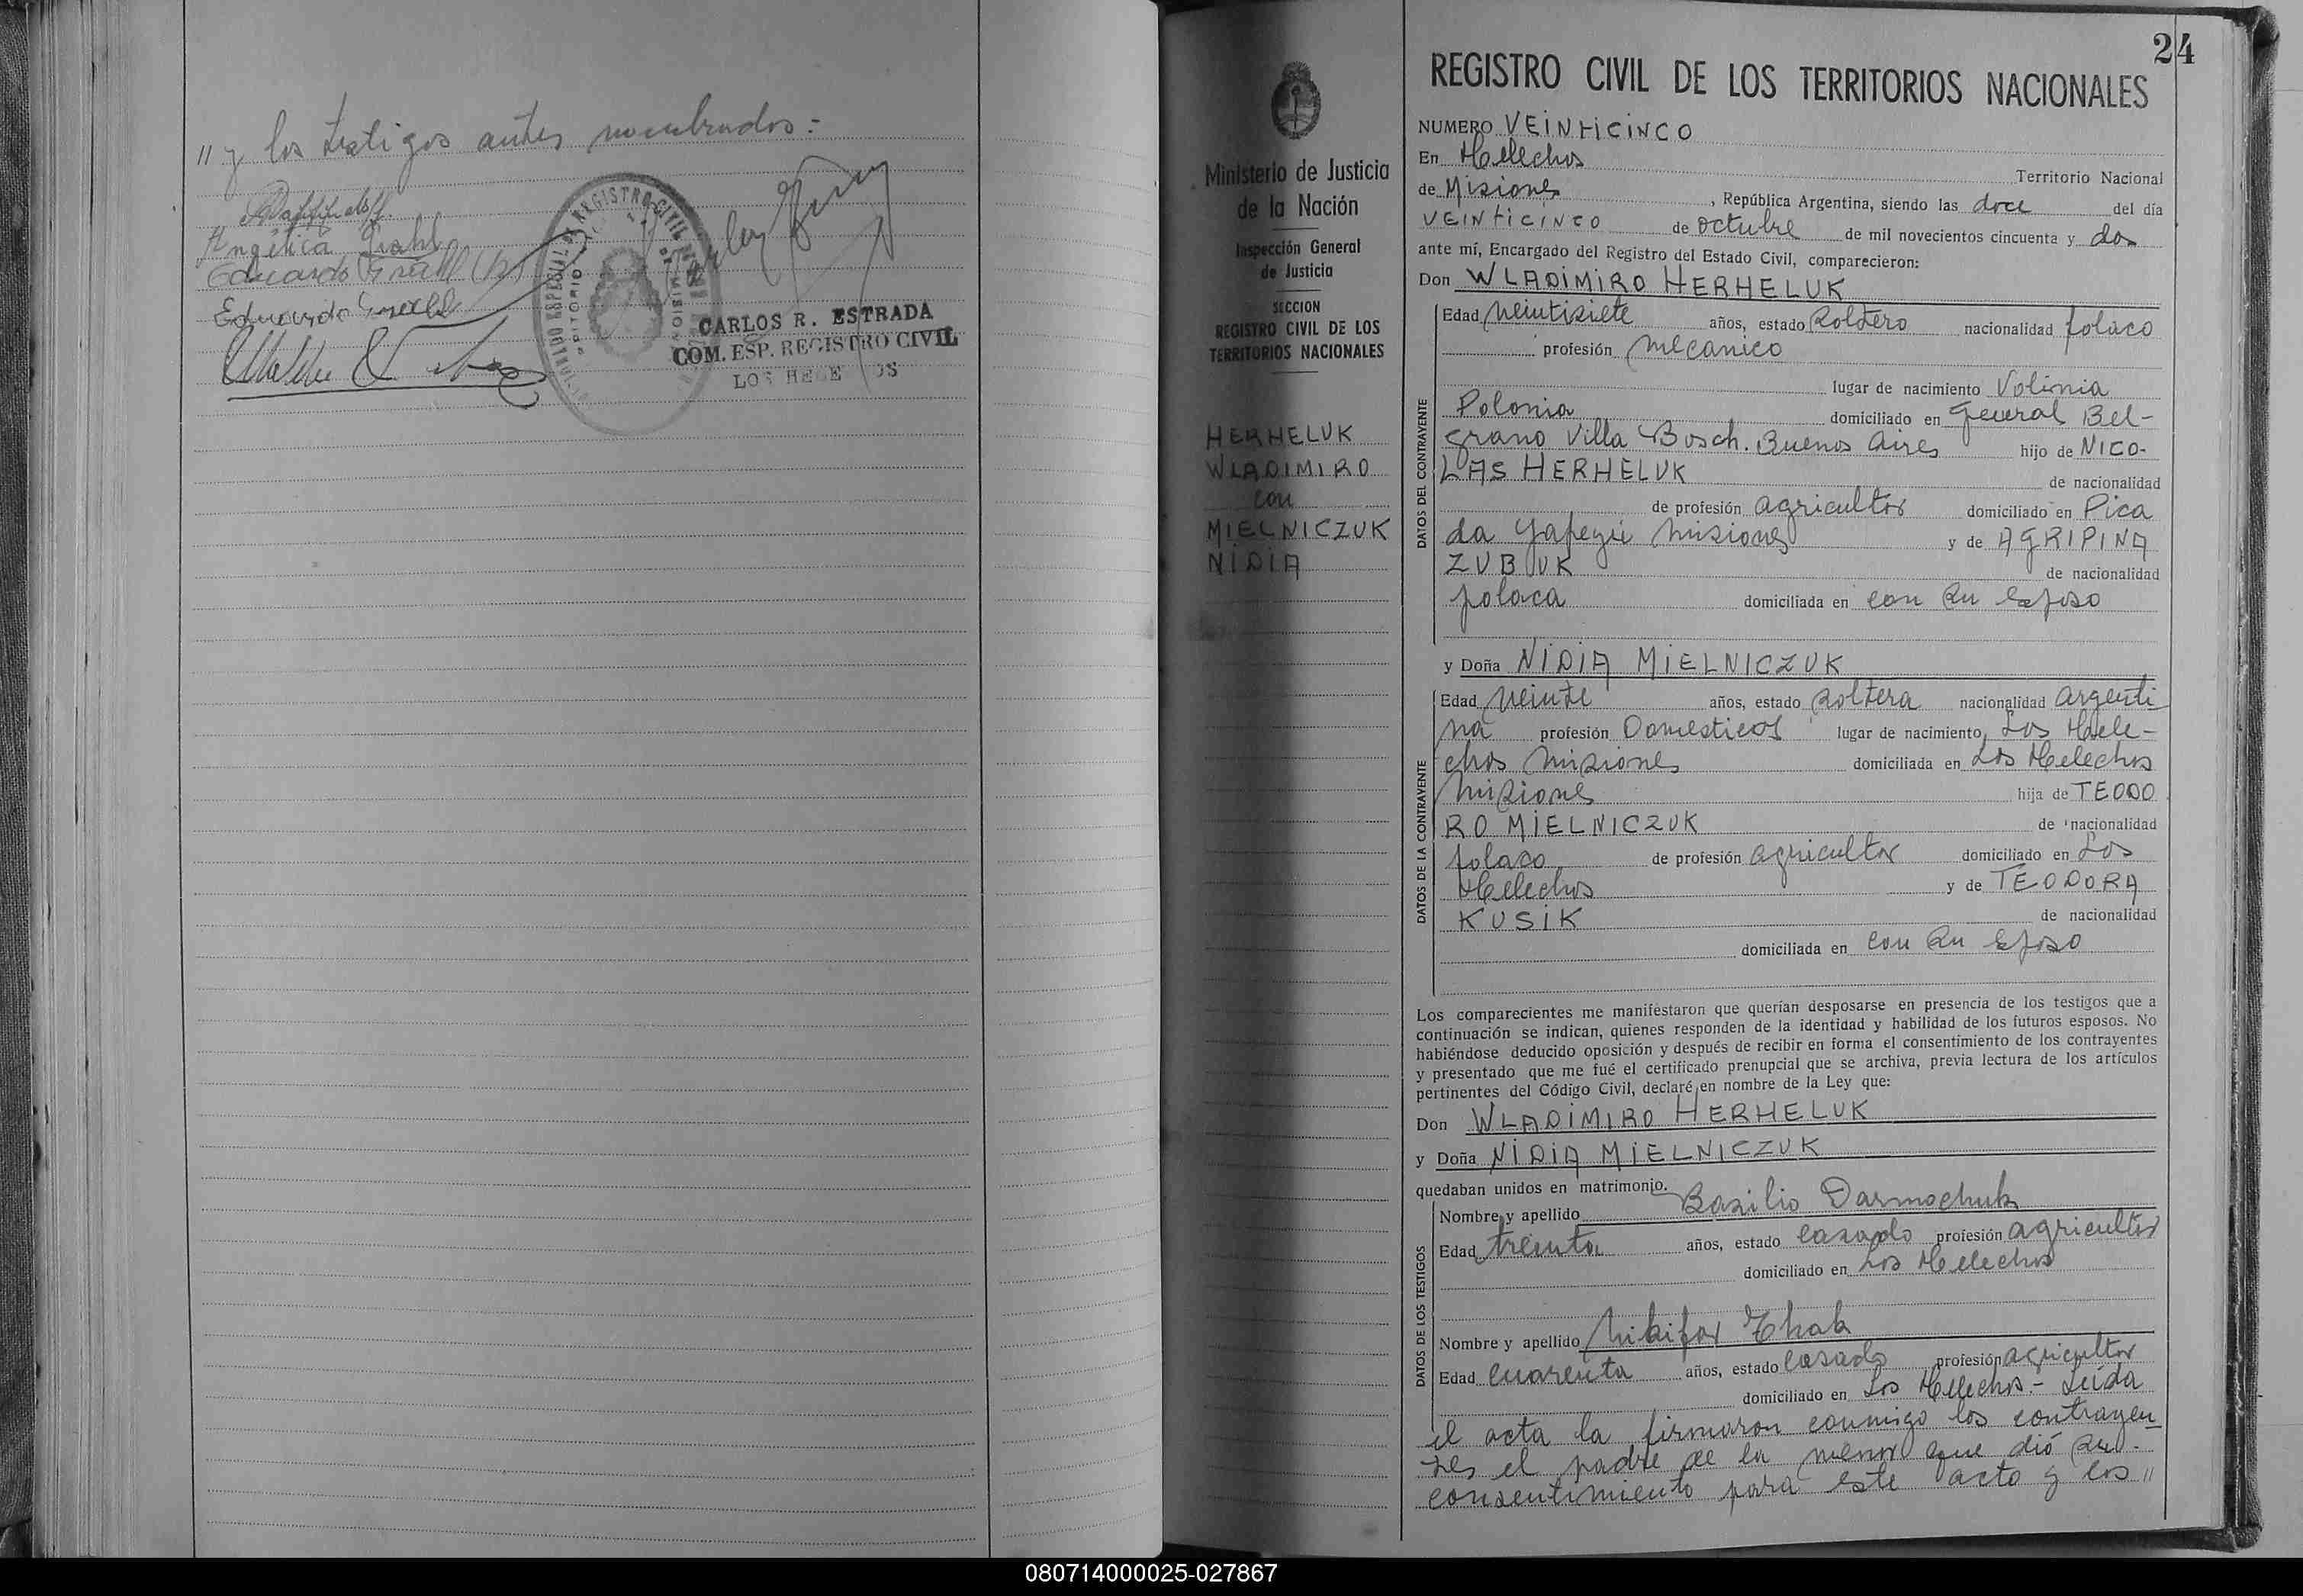 " y los testigos antes nombrados:-
Angélica
Eduardo
Eduardo
REGISTRO CIVIL
CARLOS R. ESTRADA
COM. ESP. REGISTRO CIVIL
LOS HE E OS
24
Ministerio de Justicia
de la Nación
Inspección General
de Justicia
SECCION
REGISTRO CIVIL DE LOS
TERRITORIOS NACIONALES
HERHELUK
WLADIMIRO
con
MIELNICZUK
NIDIA
REGISTRO CIVIL DE LOS TERRITORIOS NACIONALES
NUMERO VEINTICINCO
En Helechos
Territorio Nacional
de Misiones, República Argentina, siendo las doce del día
VEINTICINCO de octubre de mil novecientos cincuenta y dos
ante mí, Encargado del Registro del Estado Civil, comparecieron:
Don WLADIMIRO HERHELUK
DATOS DEL CONTRAYENTE
Edad veintisiete años, estado soltero nacionalidad polaco
profesión mecanico
lugar de nacimiento Volinia
Polonia domiciliado en General Bel-
grano Villa Bosch. Buenos Aires hijo de NICO-
LAS HERHELUK de nacionalidad
de profesión agricultor domiciliado en Pica
da Yapeyú Misiones y de AGRIPINA
ZUBUK de nacionalidad
polaca domiciliada en con su esposo
y Doña NIDIA MIELNICZUK
DATOS DE LA CONTRAYENTE
Edad veinte años, estado soltera nacionalidad argenti
na profesión Domesticos lugar de nacimiento Los Hele-
chos Misiones domiciliada en Los Helechos
Misiones hija de TEODO
RO MIELNICZUK de nacionalidad
polaco de profesión agricultor domiciliado en Los
Helechos y de TEODORA
KUSIK de nacionalidad
domiciliada en con su esposo
Los comparecientes me manifestaron que querían desposarse en presencia de los testigos que a
continuación se indican, quienes responden de la identidad y habilidad de los futuros esposos. No
habiéndose deducido oposición y después de recibir en forma el consentimiento de los contrayentes
y presentado que me fué el certificado prenupcial que se archiva, previa lectura de los artículos
pertinentes del Código Civil, declaré en nombre de la Ley que:
Don WLADIMIRO HERHELUK
y Doña NIDIA MIELNICZUK
quedaban unidos en matrimonio.
DATOS DE LOS TESTIGOS
Nombre y apellido Basilio Darmochuk
Edad treinta años, estado casado profesión agricultor
domiciliado en Los Helechos
Nombre y apellido Nikifor Tkak
Edad cuarenta años, estado casado profesión agricultor
domiciliado en Los Helechos.- Leida
el acta la firmaron conmigo los contrayen
tes el padre de la menor que dió su-
consentimiento para este acto y los "
080714000025-027867